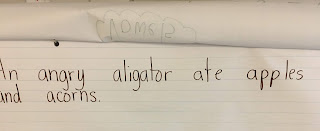 An angry aligator ate apples
and acorns.